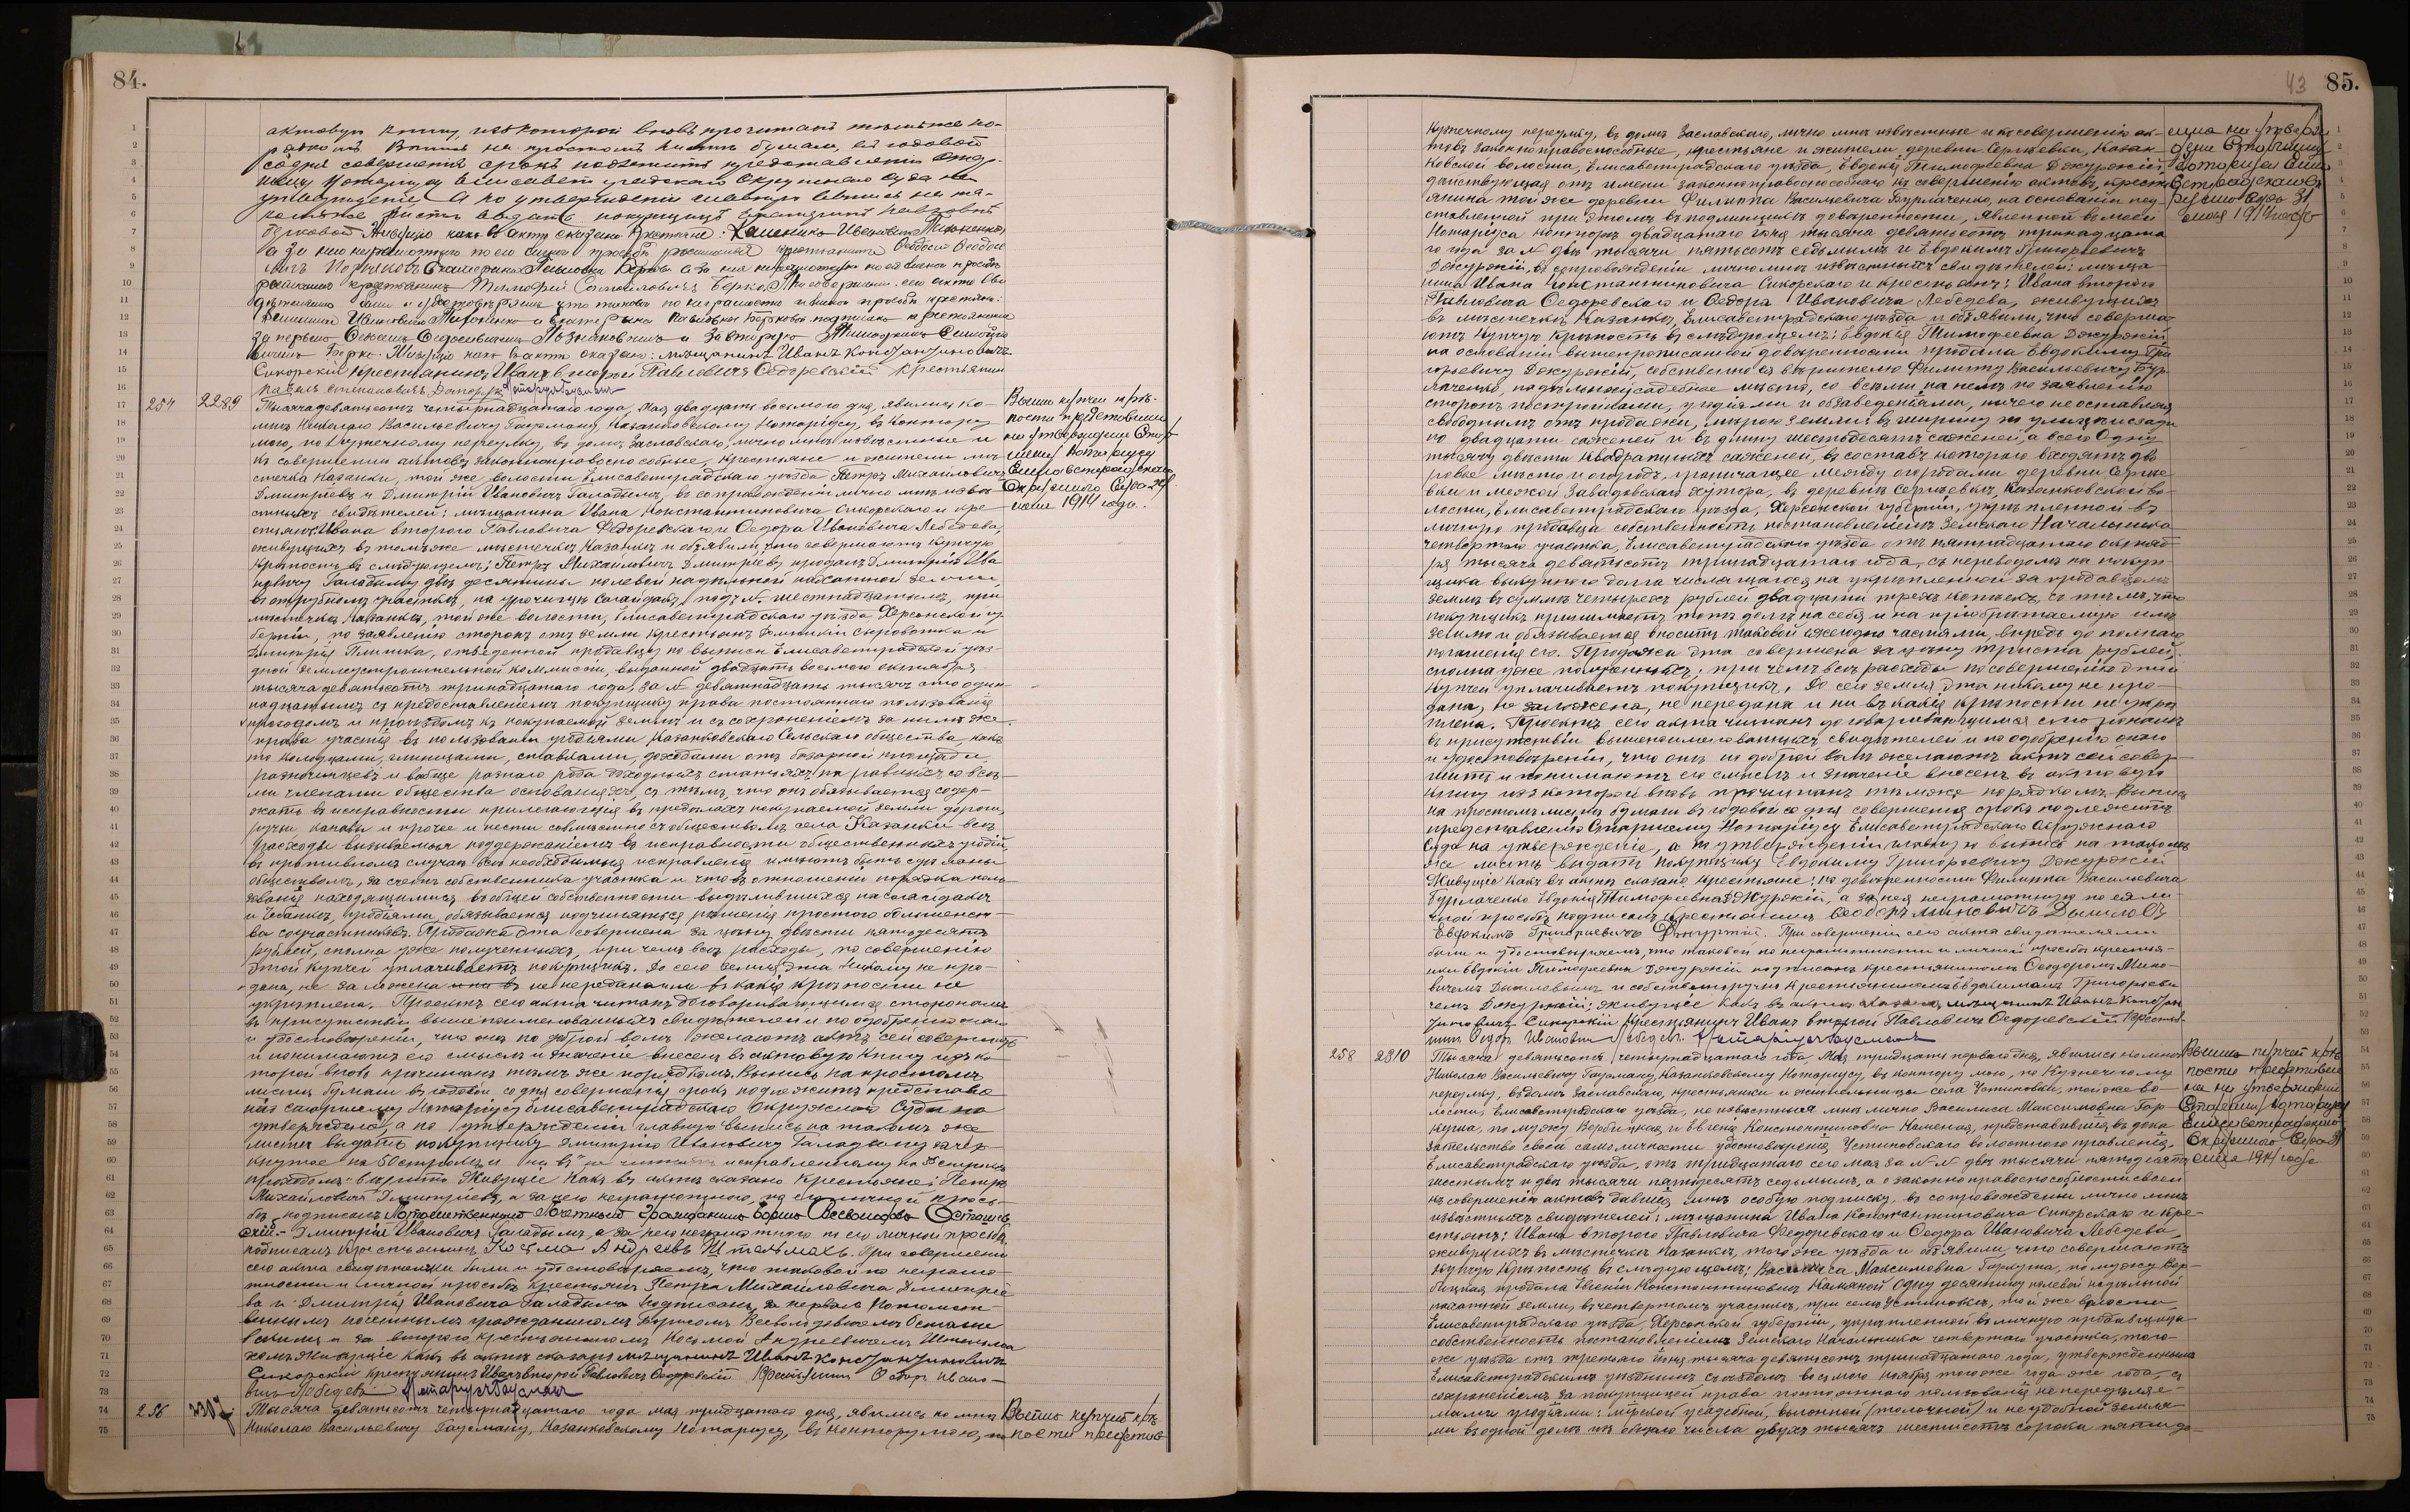 84.
актовую книгу, изъ которой вновь прочитанъ тѣмъ же по-
рядкомъ. Выпись на простомъ листѣ бумаги, въ годовой
со дня совершенія срокъ подлежитъ представленію Стар-
шему Нотаріусу Елисаветградскаго Окружнаго Суда на
утвержденіе, а по утвержденіи главную выпись на та-
комъ же листѣ выдать покупщицѣ Екатеринѣ Павловнѣ
Берковой. Живущіе какъ въ актѣ сказано крестьяне: Ивановичъ
а за него неграмотнаго по его личной просьбѣ росписался крестьянинъ
Екатерина Павловна а за нея неграмотную по ея личной просьбѣ
росписался крестьянинъ Тимофей Берко. При совершеніи сего акта сви-
дѣтелями были и удостовѣряемъ что таковой по неграмотности и личной просьбѣ крестьянъ:
Ивановича и Екатерины Павловны Берковой подписанъ крестьянами
за перваго и за вторую Тимофеемъ
Берко. Живущіе какъ въ актѣ сказано: мѣщанинъ Иванъ Константиновичъ
Сикорскій Крестьянинъ Иванъ второй Павловичъ Федоревскій Крестьянинъ
Павелъ Степановичъ Нотаріусъ Гаусманъ
254 2289 Тысяча девятьсотъ четырнадцатаго года, мая двадцать восьмого дня, явились ко
мнѣ Николаю Васильевичу Гаусману, Казанковскому Нотаріусу, въ контору
мою, по Кузнечному переулку, въ домѣ Заславскаго, лично мнѣ извѣстные и
къ совершенію актовъ законноправоспособные, крестьяне и жители мѣ-
стечка Казанки, той же волости Елисаветградскаго уѣзда Петръ Михайловичъ
Дмитріевъ и Дмитрій Ивановичъ Галадымъ, въ сопровожденіи лично мнѣ извѣ-
стныхъ свидѣтелей: мѣщанина Ивана Константиновича Сикорскаго и кре-
стьянъ: Ивана второго Павловича Федоревскаго и Федора Ивановича Лебедева,
живущихъ въ томъ же мѣстечкѣ Казанкѣ и объявили, что совершаютъ купчую
крѣпость въ слѣдующемъ: Петръ Михайловичъ Дмитріевъ продалъ Дмитрію Ива-
новичу Галадыму двѣ десятины полевой надѣльной пахатной земли,
въ отрубномъ участкѣ, на урочищѣ Сагайдакѣ, подъ № шестнадцатымъ, при
мѣстечкѣ Казанкѣ, той же волости, Елисаветградскаго уѣзда, Херсонской гу-
берніи, по заявленію сторонъ отъ земли крестьянъ Сыроватка и
Дмитрія Плышка, отведенной продавцу по выписи Елисаветградской уѣзд-
ной Землеустроительной Коммиссіи, выданной двадцать восьмого октября
тысяча девятьсотъ тринадцатаго года, за № девятнадцать тысячъ сто один-
надцатымъ съ предоставленіемъ покупщику права постояннаго пользованія
проходомъ и проѣздомъ къ покупаемой землѣ и съ сохраненіемъ за нимъ же
права участія въ пользованіи угодіями Казанковскаго Сельскаго общества, какъ
то колодцами, глинищами, ставками, доходами отъ базарной площади,
разночинцевъ и вообще разнаго рода доходныхъ статьяхъ на равныхъ со всѣ-
ми членами общества основаніяхъ, съ тѣмъ, что онъ обязывается содер-
жать въ исправности прилегающія въ предѣлахъ покупаемой земли дороги,
ручьи, канавы и прочее и нести совмѣстно съ обществомъ села Казанки всѣ
расходы вызываемыя поддержаніемъ въ исправности общественныхъ угодій,
въ противномъ случаѣ всѣ необходимыя исправленія имѣютъ быть сдѣланы
обществомъ, за счетъ собственника участка и что въ отношеніи порядка поль-
зованія находящимися въ общей собственности выдѣлившихся на Сагайдакѣ
угодіями, обязывается подчиняться рѣшенію простого большинст-
ва соучастниковъ. Продажа эта совершена за цѣну двѣсти пятьдесятъ
рублей, сполна уже полученныхъ, при чемъ всѣ расходы, по совершенію
этой купчей уплачиваетъ покупщикъ. До сего земля эта никому не про-
дана, не заложена, не передана и ни въ какія крѣпости не
укрѣплена. Проектъ сего акта читанъ договаривающимся сторонамъ
въ присутствіи вышепоименованныхъ свидѣтелей и по одобреніи онаго
и удостовѣреніи, что они по доброй волѣ желаютъ актъ сей совершить
и понимаютъ его смыслъ и значеніе внесенъ въ актовую книгу изъ ко-
торой вновь прочитанъ тѣмъ же порядкомъ. Выпись на простомъ
листѣ бумаги въ годовой со дня совершенія срокъ подлежитъ представле-
нію Старшему Нотаріусу Елисаветградскаго Окружнаго Суда на
утвержденіе, а по утвержденіи главную выпись на такомъ же
листѣ выдать покупщику Дмитрію Ивановичу Галадыму зачер-
кнутое на 50 строкѣ „или въ“ не читать исправленному на 35 строкѣ
„проходомъ“ вѣрить. Живущіе какъ въ актѣ сказано Крестьяне: Петръ
Михайловичъ Дмитріевъ, а за него неграмотнаго, по его личной прось-
бѣ подписалъ Потомственный Почетный Гражданинъ Борисъ Всеволодовъ
Дмитрій Ивановичъ Галадымъ, а за него неграмотнаго по его личной просьбѣ
подписалъ крестьянинъ Косьма Андреевъ Штельмахъ. При совершеніи
сего акта свидѣтелями были и удостовѣряемъ, что таковой по неграмо-
тности и личной просьбѣ крестьянъ Петра Михайловича Дмитріе-
ва и Дмитрія Ивановича Галадыма подписанъ, за перваго Потомст-
веннымъ почетнымъ гражданиномъ Борисомъ Всеволодовичемъ
а за второго крестьяниномъ Косьмой Андреевичемъ Штельма-
хомъ. Живущіе какъ въ актѣ сказано мѣщанинъ Иванъ Константиновичъ
Сикорскій Крестьянинъ Иванъ второй Павловичъ Федоревскій Крестьянинъ Федоръ Ивано-
вичъ Лебедевъ Нотаріусъ Гаусманъ
Выпись купчей крѣ-
пости представлена
на утвержденіе Стар-
шему Нотаріусу
Елисаветградскаго
Окружнаго Суда
1914 года.
256 Тысяча девятьсотъ четырнадцатаго года мая тридцатаго дня, явились ко мнѣ
Николаю Васильевичу Гаусману, Казанковскому Нотаріусу, въ контору мою, по
Выпись купчей крѣ-
пости представ-
43 85.
Кузнечному переулку, въ домѣ Заславскаго, лично мнѣ извѣстные и къ совершенію ак-
товъ законноправоспособные, крестьяне и жители деревни Сергѣевки, Казан-
ковской волости, Елисаветградскаго уѣзда, Евдокія Тимофеевна Джуржій,
дѣйствующая отъ имени законноправоспособнаго къ совершенію актовъ, кресть-
янина той же деревни Филиппа Васильевича Бурлаченко, на основаніи пред-
ставленной при этомъ въ подлинникѣ довѣренности, явленной у меня
Нотаріуса двадцатаго тысяча девятьсотъ тринадцата-
го года за № двѣ тысячи пятьсотъ седьмымъ и Евдокимъ Григорьевичъ
Джуржій, въ сопровожденіи лично мнѣ извѣстныхъ свидѣтелей: мѣща-
нина Ивана Константиновича Сикорскаго и крестьянъ: Ивана второго
Павловича Федоревскаго и Федора Ивановича Лебедева, живущихъ
въ мѣстечкѣ Казанкѣ, Елисаветградскаго уѣзда и объявили, что соверша-
ютъ купчую крѣпость въ слѣдующемъ: Евдокія Тимофеевна Джуржій
на основаніи вышепрописанной довѣренности продала Евдокиму Гри-
горьевичу Джуржій, собственно ея вѣрителю Филиппу Васильевичу Бур-
лаченко, надѣльное усадебное мѣсто, со всѣми на немъ по заявленію
сторонъ постройками, угодіями и обзаведеніями, ничего не оставляя
свободнымъ отъ продажи, мѣрою земли: въ ширину по улицѣ и сзади
по двадцати саженей и въ длину шестьдесятъ саженей, а всего одну
тысячу двѣсти квадратныхъ саженей, въ составъ котораго входятъ дво-
ровое мѣсто и огородъ, граничащее между огородами деревни Сергѣе-
вки и межой Завадовскаго хутора, въ деревнѣ Сергѣевкѣ, Казанковской во-
лости, Елисаветградскаго уѣзда, Херсонской губерніи, укрѣпленной въ
личную продавца собственность постановленіемъ Земскаго Начальника
четвертаго участка, Елисаветградскаго уѣзда отъ пятнадцатаго октяб-
ря тысяча девятьсотъ тринадцатаго года, съ переводомъ на покуп-
щика выкупного долга числящагося на укрѣпленной за продавцомъ
землѣ въ суммѣ четырехъ рублей двадцати трехъ копѣекъ, съ тѣмъ, что
покупщикъ принимаетъ тотъ долгъ на себя и на пріобрѣтаемую имъ
землю и обязывается вносить таковой ежегодно частями, впредь до полнаго
погашенія его. Продажа эта совершена за цѣну триста рублей,
сполна уже полученныхъ, при чемъ всѣ расходы по совершенію этой
купчей уплачиваетъ покупщикъ. До сего земля эта никому не про-
дана, не заложена, не передана и ни въ какія крѣпости не укрѣ-
плена. Проектъ сего акта читанъ договаривающимся сторонамъ
въ присутствіи вышепоименованныхъ свидѣтелей и по одобреніи онаго
и удостовѣреніи, что они по доброй волѣ желаютъ актъ сей совер-
шить и понимаютъ его смыслъ и значеніе внесенъ въ актовую
книгу изъ которой вновь прочитанъ тѣмъ же порядкомъ. Выпись
на простомъ листѣ бумаги въ годовой со дня совершенія срокъ подлежитъ
представленію Старшему Нотаріусу Елисаветградскаго Окружнаго
Суда на утвержденіе, а по утвержденіи главную выпись на такомъ
же листѣ выдать покупщику Евдокиму Григорьевичу Джуржій
Живущіе какъ въ актѣ сказано крестьяне: по довѣренности Филиппа Васильевича
Бурлаченко Евдокія Тимофеевна Джуржій, а за нея неграмотную по ея ли-
чной просьбѣ подписалъ крестьянинъ Федоръ Миновичъ
Евдокимъ Григорьевичъ Джуржій. При совершеніи сего акта свидѣтелями
были и удостовѣряемъ, что таковой по неграмотности и личной просьбѣ крестьян-
ки Евдокіи Тимофеевны Джуржій подписанъ крестьяниномъ Федоромъ Мино-
вичемъ и собственноручно крестьяниномъ Евдокимомъ Григорьеви-
чемъ Джуржій; живущіе какъ въ актѣ сказано мѣщанинъ Иванъ Констан-
тиновичъ Сикорскій Крестьянинъ Иванъ второй Павловичъ Федоревскій Крестья-
нинъ Федоръ Ивановичъ Лебедевъ. Нотаріусъ Гаусманъ
лена на утверж-
деніе Старшему
Нотаріусу Елиса-
ветградскаго Ок-
ружнаго Суда 31
1914 года
258 2310 Тысяча девятьсотъ четырнадцатаго года, Мая тридцать перваго дня, явились ко мнѣ
Николаю Васильевичу Гаусману, Казанковскому Нотаріусу, въ контору мою, по Кузнечному
переулку, въ домѣ Заславскаго, крестьянки и жительницы села Устиновки, той же во-
лости, Елисаветградскаго уѣзда, не извѣстныя мнѣ лично Василиса Максимовна Гор-
куша, по мужу Вербицкая и Евгенія Константиновна Каменая, представившія въ дока-
зательство своей самоличности удостовѣренія Устиновскаго волостного правленія,
Елисаветградскаго уѣзда, отъ тридцатаго сего мая за №№ двѣ тысячи пятьдесятъ
шестымъ и двѣ тысячи пятьдесятъ седьмымъ, а о законноправоспособности своей
къ совершенію актовъ давшія мнѣ особую подписку, въ сопровожденіи лично мнѣ
извѣстныхъ свидѣтелей: мѣщанина Ивана Константиновича Сикорскаго и кре-
стьянъ: Ивана второго Павловича Федоревскаго и Федора Ивановича Лебедева,
живущихъ въ мѣстечкѣ Казанкѣ, того же уѣзда и объявили, что совершаютъ
купчую крѣпость въ слѣдующемъ: Василиса Максимовна Горкуша, по мужу Вер-
бицкая продала Евгеніи Константиновнѣ Каменой одну десятину полевой надѣльной
пахатной земли, въ четвертомъ участкѣ, при селѣ Устиновкѣ, той же волости,
Елисаветградскаго уѣзда, Херсонской губерніи, укрѣпленной въ личную продавщицы
собственность постановленіемъ Земскаго Начальника четвертаго участка, того
же уѣзда отъ третьяго іюня тысяча девятьсотъ тринадцатаго года, утвержденнымъ
Елисаветградскимъ уѣзднымъ съѣздомъ восьмого ноября того же года, съ
сохраненіемъ за покупщицей права постояннаго пользованія не передѣляе-
мыми угодіями: мірской усадебной, выгонной (толочной) и неудобной земля-
ми въ одной долѣ изъ общаго числа двухъ тысячъ шестисотъ сорока пяти до-
Выпись купчей крѣ-
пости представле-
на на утвержденіе
Старшему Нотаріусу
Елисаветградскаго
Окружнаго Суда
1914 года